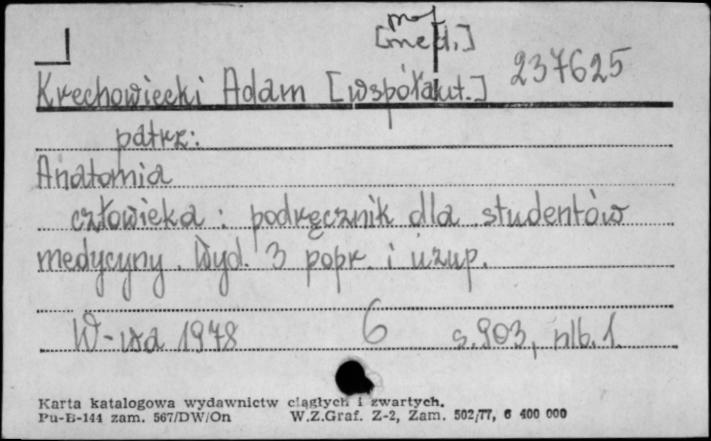 [med.]
Krechowiecki Adam [współaut.] 237625
patrz:
Anatomia
człowieka : podręcznik dla studentów
medycyny. Wyd. 3 popr. i uzup.
W-wa 1978 6 s. 903, nlb. 1.
Karta katalogowa wydawnictw ciągłych i zwartych.
Pu-B-144 zam. 567/DW/On W.Z.Graf. Z-2, Zam. 502/77, 6 400 000